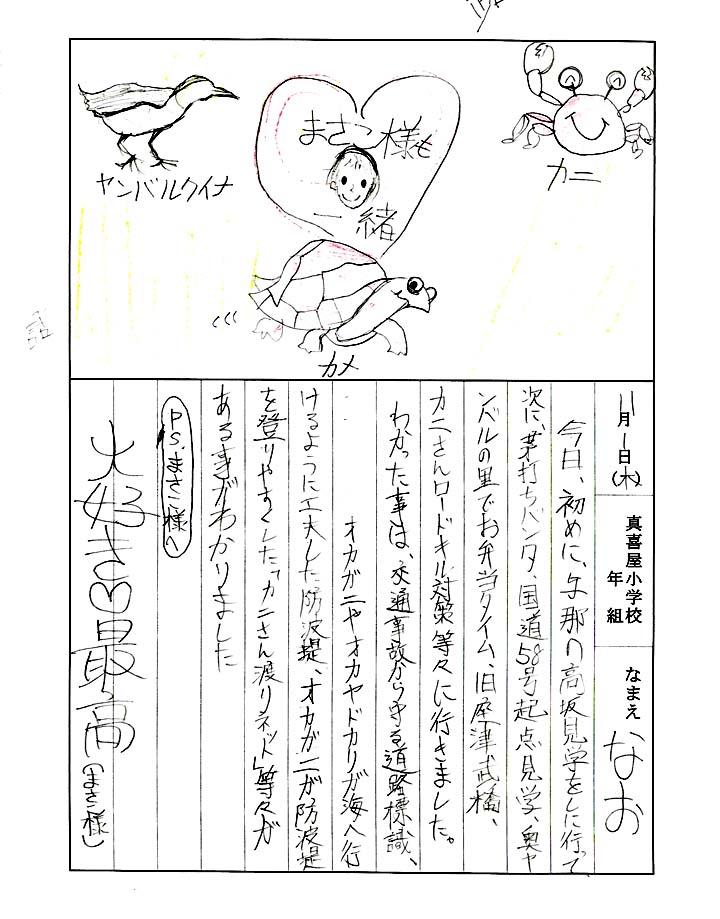 まさこ様も
一緒
ヤンバルクイナ
カニ
カメ
11月1日(木)
真喜屋小学校
年 組
なまえ なお
今日、初めに、与那の高坂見学をしに行って、
次に、茅打ちバンタ、国道58号起点見学、奥ヤ
ンバルの里でお弁当タイム、旧座津武橋、
カニさんロードキル対策等々に行きました。
わかった事は、交通事故から守る道路標識、
オカガニやオカヤドカリが海へ行
けるように工夫した防波堤、オカガニが防波堤
を登りやすくした「カニさん渡りネット」等々が
ある事がわかりました
P.S.まさこ様へ
大好き♡最高(まさこ様)